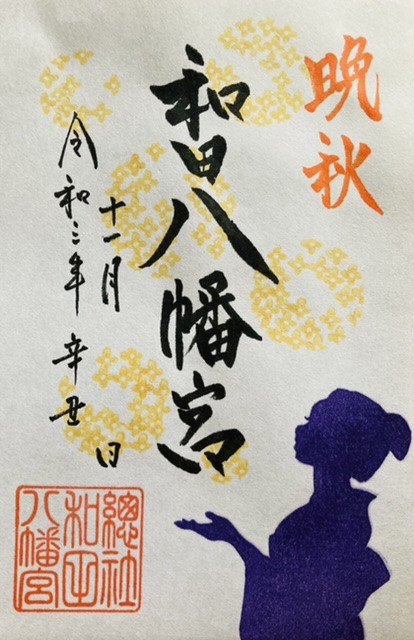 晩秋
和田八幡宮
十一月
令和三年 辛丑 日
總社
和田
八幡宮